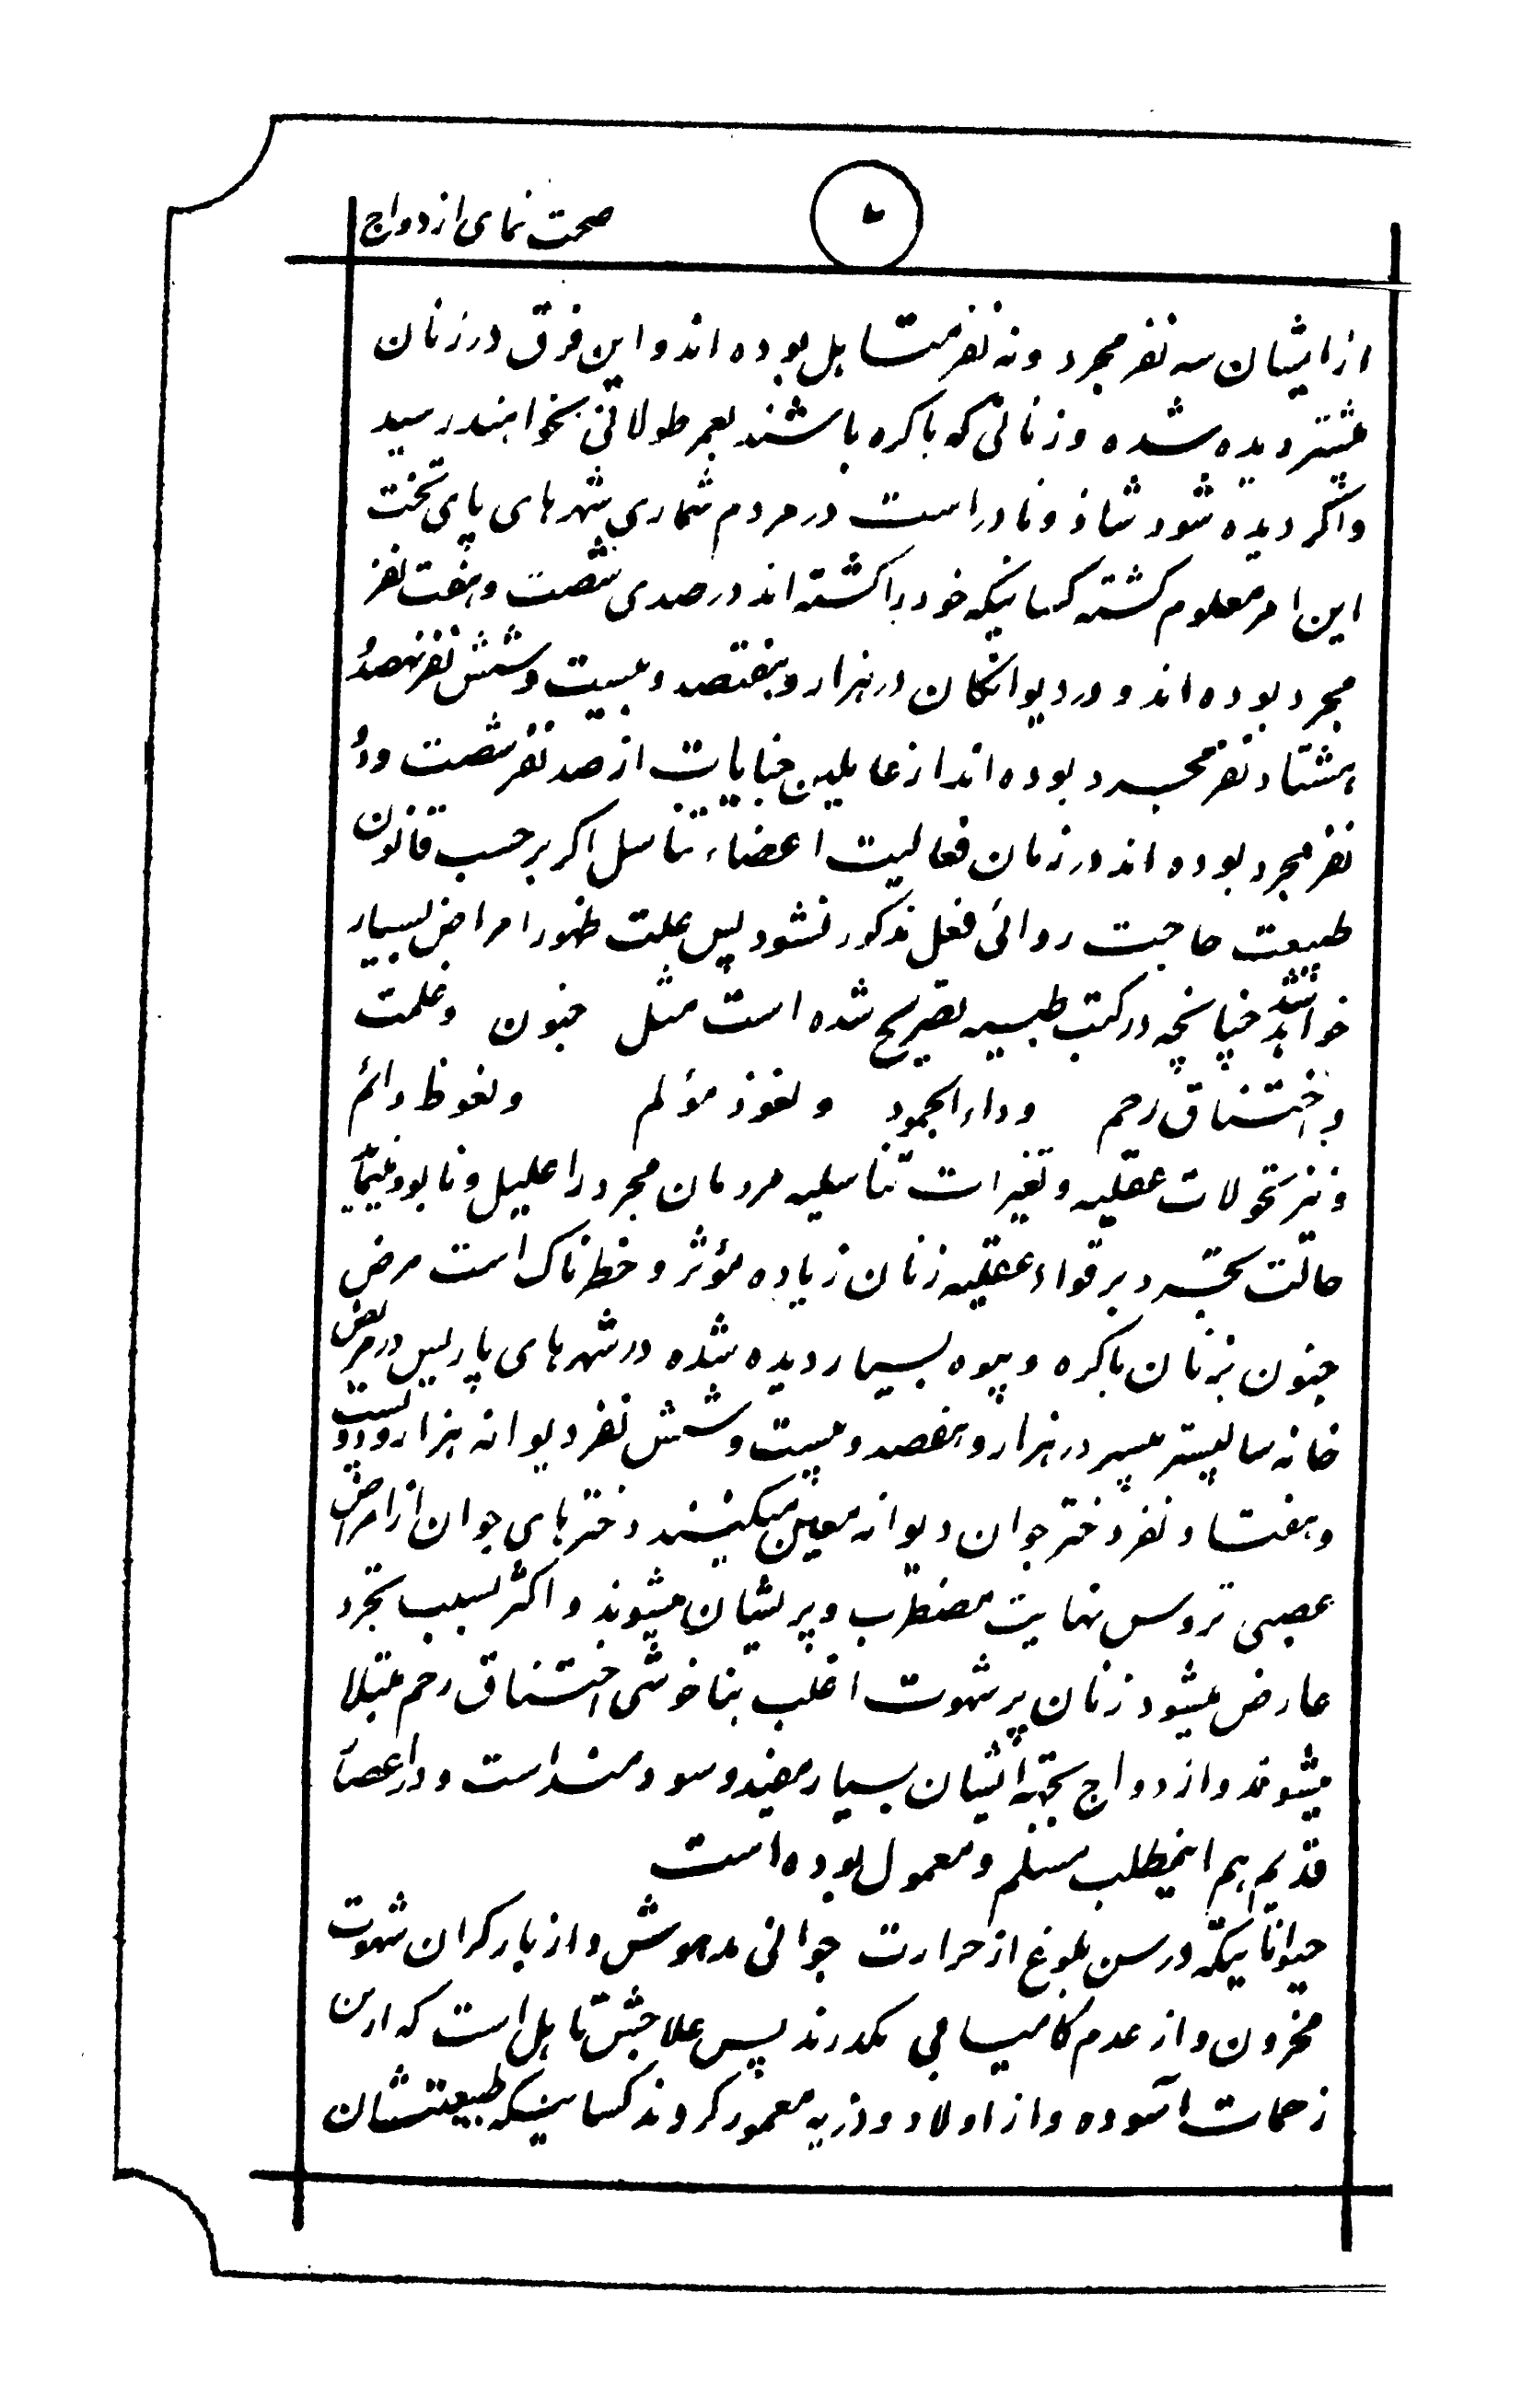 صحت نمای ازدواج
از ایشان سه نفر مجرد و نه نفر متاهل بوده اند و این فرق در زنان
بیشتر دیده شده و زنانی که باکره باشند بعمر طولانی نخواهند رسید
واکر دیده شود شاذ و نادر است در مردم شماری شهرهای پای تخت
این امر معلوم کشته کسانیکه خود را کشته اند در صدی شصت و هفت نفر
مجرد بوده اند و در دیوانکان در هزار و هفتصد و بیست و شش نفر نهصد و
هشتاد نفر مجرد بوده اند از عاملین جنایات از صد نفر شصت و دو
نفر مجرد بوده اند در زمان فعالیت اعضاء تناسل اکر بر حسب قانون
طبیعت حاجت روائی فعل مذکور نشود پس علت ظهور امراض بسیار
خواهد شد چنانچه در کتب طبیه تصریح شده است مثل جنون و غلمت
و اختناق رحم و داء الجمود و نعوذ مؤلم و نعوظ دائم
و نیز تحولات عقلیه و تغیرات تناسلیه مردمان مجرد را علیل و نابود مینماید
حالت تجرد بر قواء عقلیه زنان زیاده مؤثر و خطرناک است مرض
جنون بزنان باکره و بیوه بسیار دیده شده در شهرهای پاریس در مریض
خانه سالپستریر در هزار و هفصد و بیست و شش نفر دیوانه هزار و دویست
و هفتاد نفر دختر جوان دیوانه معین میکنند دخترهای جوان از امراض
عصبی نروس نهایت مضطرب و پریشان میشوند و اکثر بسبب تجرد
عارض میشود زنان پر شهوت اغلب بناخوشی اختناق رحم مبتلا
میشوند و ازدواج بجهة ایشان بسیار مفید و سودمند است و در اعصار
قدیم هم اینمطلب مسلم و معمول بوده است
حیواناتیکه در سن بلوغ از حرارت جوانی مدهوش و از بار کران شهوت
مخزون و از عدم کامیابی مکدرند پس علاجش تاهل است که از این
زحمات آسوده و از اولاد و ذریه معمور کردند کسانیکه طبیعتشان